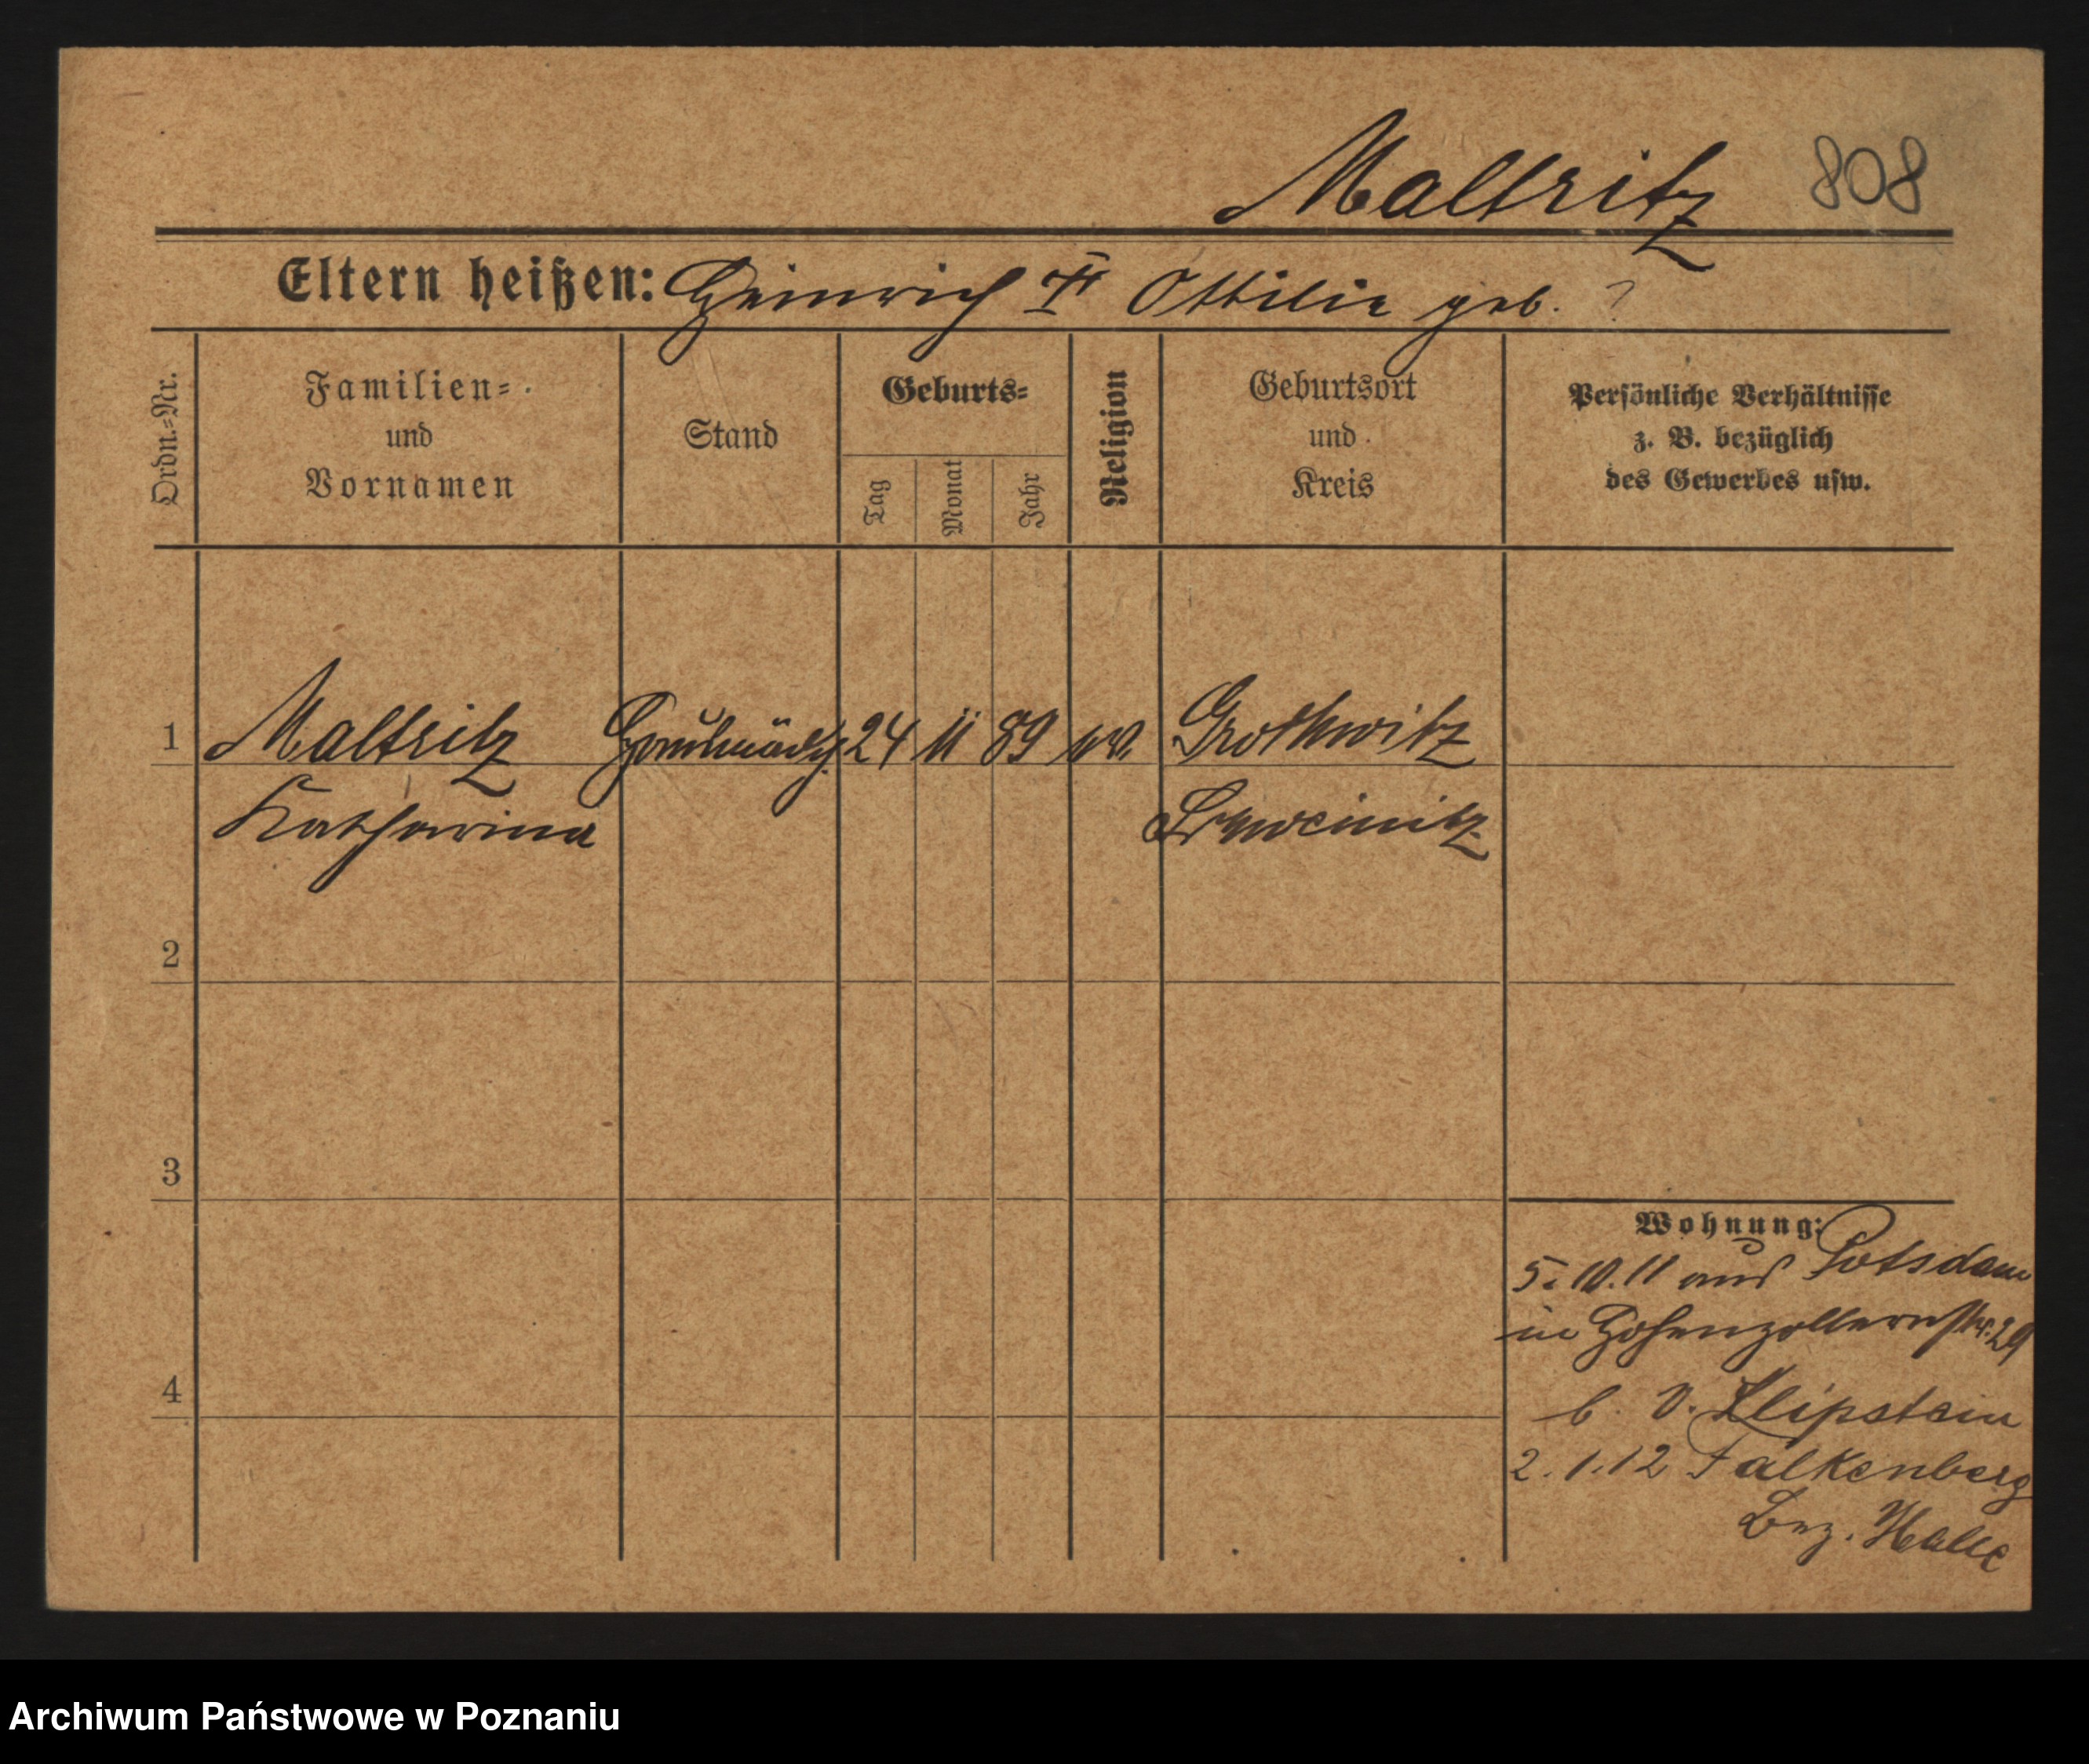 Maltritz 808
Eltern heißen: Heinrich u. Ottilie geb. ?
Ordn.=Nr.
Familien=
und
Vornamen
Stand
Geburts=
Tag
Monat
Jahr
Religion
Geburtsort
und
Kreis
Persönliche Verhältnisse
z. B. bezüglich
des Gewerbes usw.
1 Maltritz Hausmädch. 24 11 89 ev. Grothwitz
Katharina Schweinitz
2
3
4
Wohnung:
5.10.11 aus Potsdam
in Hohenzollernstr. 29
b. v. Klipstein
2.1.12 Falkenberg
Bez. Halle
Archiwum Państwowe w Poznaniu